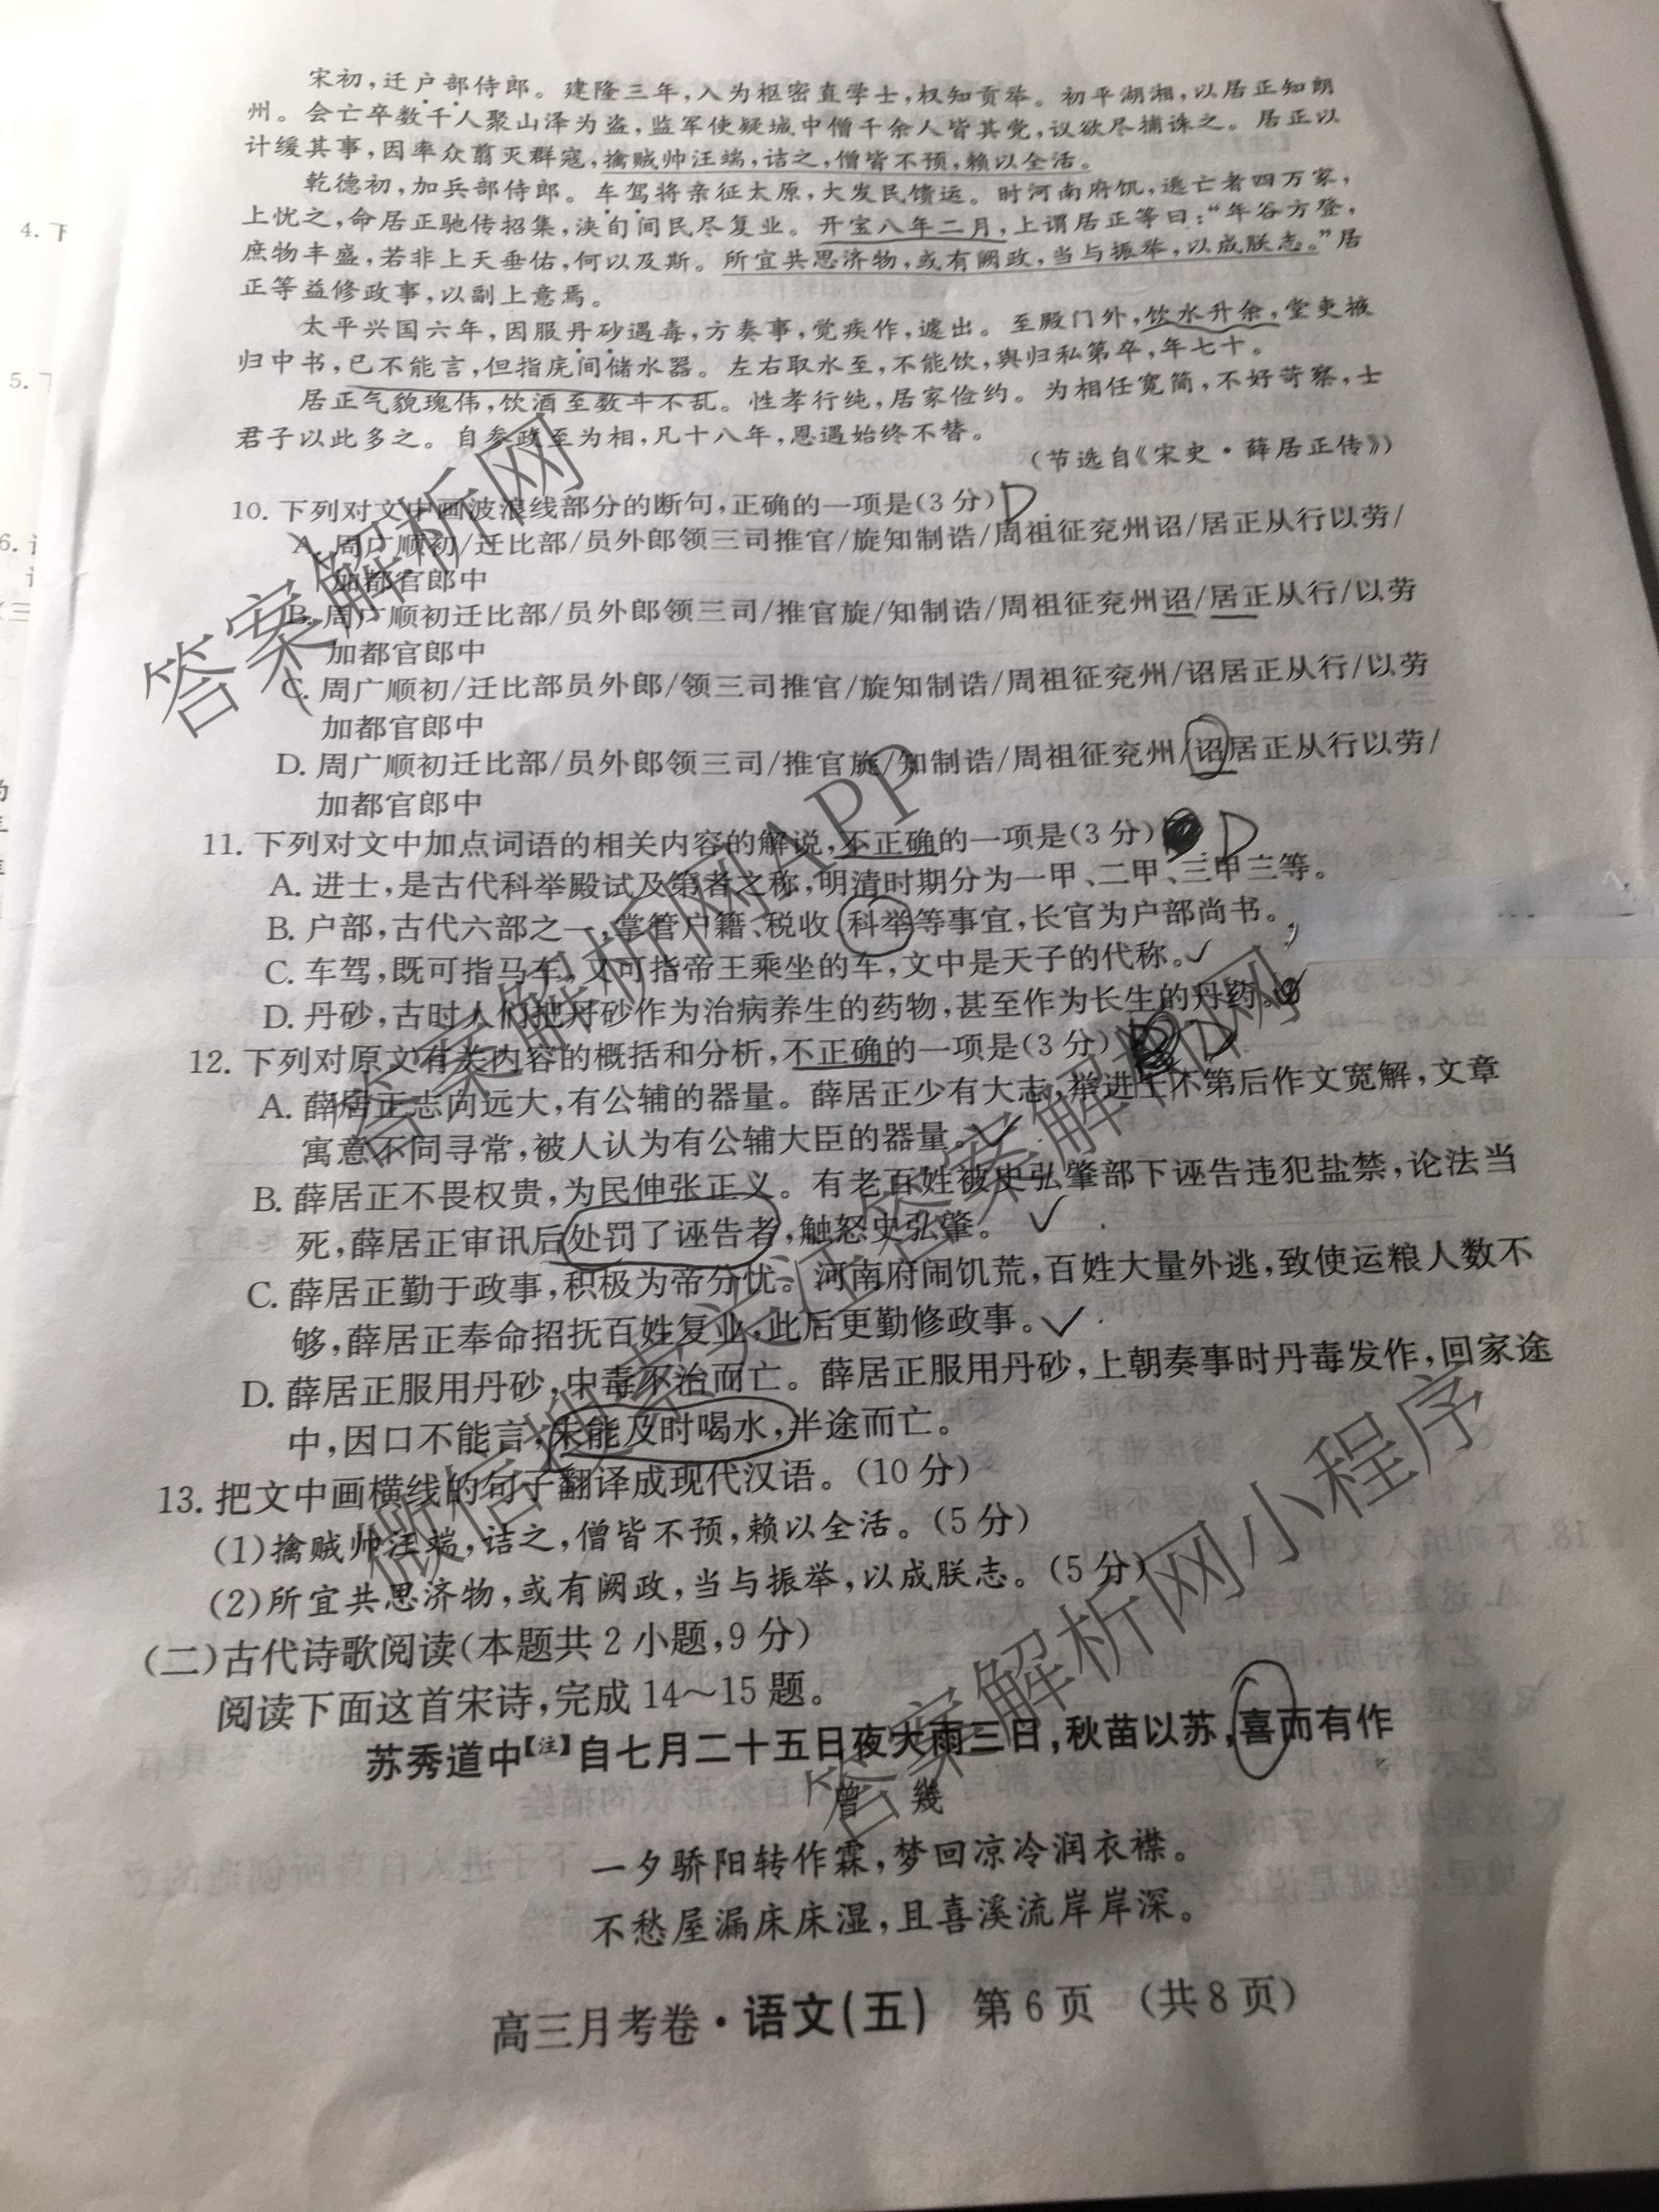 宋初,迁户部侍郎。建隆三年,入为枢密直学士,权知贡举。初平湖湘,以居正知朗
州。会亡卒数千人聚山泽为盗,监军使疑城中僧千余人皆其党,议欲尽捕诛之。居正以
计缓其事,因率众翦灭群寇,擒贼帅汪端,诘之,僧皆不预,赖以全活。
乾德初,加兵部侍郎。车驾将亲征太原,大发民馈运。时河南府饥,逃亡者四万家,
上忧之,命居正驰传招集,浃旬间民尽复业。开宝八年二月,上谓居正等曰:“年谷方登,
庶物丰盛,若非上天垂佑,何以及斯。所宜共思济物,或有阙政,当与振举,以成朕志。”居
正等益修政事,以副上意焉。
太平兴国六年,因服丹砂遇毒,方奏事,觉疾作,遽出。至殿门外,饮水升余,堂吏掖
归中书,已不能言,但指庑间储水器。左右取水至,不能饮,舆归私第卒,年七十。
居正气貌瑰伟,饮酒至数斗不乱。性孝行纯,居家俭约。为相任宽简,不好苛察,士
君子以此多之。自参政至为相,凡十八年,恩遇始终不替。
(节选自《宋史·薛居正传》)
10. 下列对文中画波浪线部分的断句,正确的一项是(3 分) D
A. 周广顺初/迁比部/员外郎领三司推官/旋知制诰/周祖征兖州诏/居正从行以劳/
加都官郎中
B. 周广顺初迁比部/员外郎领三司/推官旋/知制诰/周祖征兖州诏/居正从行/以劳
加都官郎中
C. 周广顺初/迁比部员外郎/领三司推官/旋知制诰/周祖征兖州/诏居正从行/以劳
加都官郎中
D. 周广顺初迁比部/员外郎领三司/推官旋/知制诰/周祖征兖州/诏居正从行以劳/
加都官郎中
11. 下列对文中加点词语的相关内容的解说,不正确的一项是(3 分) D
A. 进士,是古代科举殿试及第者之称,明清时期分为一甲、二甲、三甲三等。
B. 户部,古代六部之一,掌管户籍、税收、科举等事宜,长官为户部尚书。
C. 车驾,既可指马车,又可指帝王乘坐的车,文中是天子的代称。
D. 丹砂,古时人们把丹砂作为治病养生的药物,甚至作为长生的丹药。
12. 下列对原文有关内容的概括和分析,不正确的一项是(3 分) D
A. 薛居正志向远大,有公辅的器量。薛居正少有大志,举进士不第后作文宽解,文章
寓意不同寻常,被人认为有公辅大臣的器量。
B. 薛居正不畏权贵,为民伸张正义。有老百姓被史弘肇部下诬告违犯盐禁,论法当
死,薛居正审讯后处罚了诬告者,触怒史弘肇。
C. 薛居正勤于政事,积极为帝分忧。河南府闹饥荒,百姓大量外逃,致使运粮人数不
够,薛居正奉命招抚百姓复业,此后更勤修政事。
D. 薛居正服用丹砂,中毒不治而亡。薛居正服用丹砂,上朝奏事时丹毒发作,回家途
中,因口不能言,未能及时喝水,半途而亡。
13. 把文中画横线的句子翻译成现代汉语。(10 分)
(1)擒贼帅汪端,诘之,僧皆不预,赖以全活。(5 分)
(2)所宜共思济物,或有阙政,当与振举,以成朕志。(5 分)
(二)古代诗歌阅读(本题共 2 小题,9 分)
阅读下面这首宋诗,完成 14～15 题。
苏秀道中【注】自七月二十五日夜大雨三日,秋苗以苏,喜而有作
曾 幾
一夕骄阳转作霖,梦回凉冷润衣襟。
不愁屋漏床床湿,且喜溪流岸岸深。
高三月考卷·语文(五) 第 6 页 (共 8 页)
答案解析网
答案解析网APP
微信搜索关注答案解析网
答案解析网小程序
4. 下
5.
6.